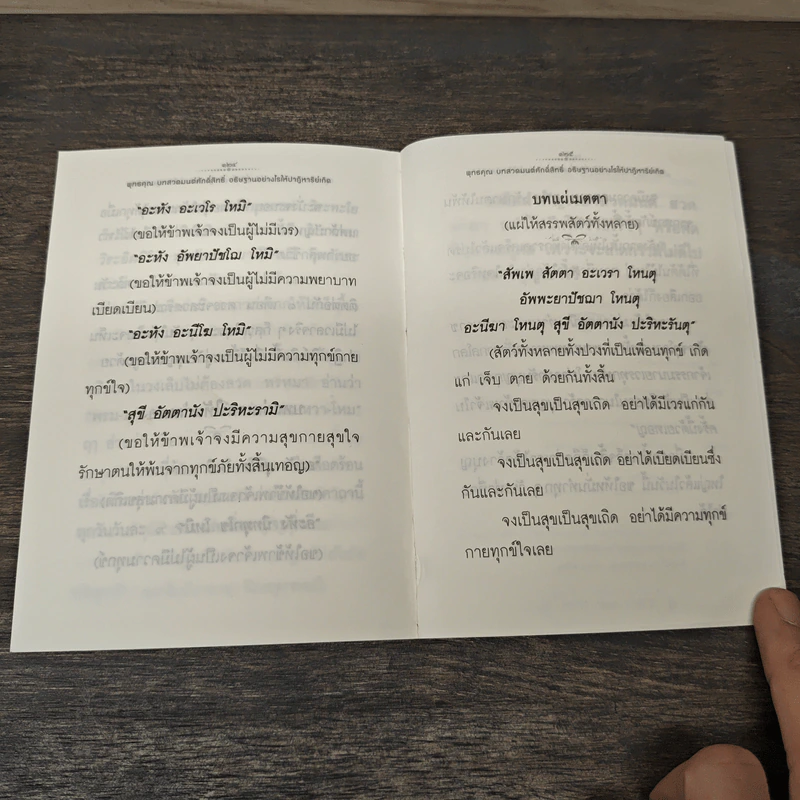 ๑๒๔
พุทธคุณ บทสวดมนต์ศักดิ์สิทธิ์ อธิษฐานอย่างไรให้ปาฏิหาริย์เกิด
"อะหัง อะเวโร โหมิ"
(ขอให้ข้าพเจ้าจงเป็นผู้ไม่มีเวร)
"อะหัง อัพยาปัชโฌ โหมิ"
(ขอให้ข้าพเจ้าจงเป็นผู้ไม่มีความพยาบาท
เบียดเบียน)
"อะหัง อะนีโฆ โหมิ"
(ขอให้ข้าพเจ้าจงเป็นผู้ไม่มีความทุกข์กาย
ทุกข์ใจ)
"สุขี อัตตานัง ปะริหะรามิ"
(ขอให้ข้าพเจ้าจงมีความสุขกายสุขใจ
รักษาตนให้พ้นจากทุกข์ภัยทั้งสิ้นเทอญ)
๑๒๕
พุทธคุณ บทสวดมนต์ศักดิ์สิทธิ์ อธิษฐานอย่างไรให้ปาฏิหาริย์เกิด
บทแผ่เมตตา
(แผ่ให้สรรพสัตว์ทั้งหลาย)
"สัพเพ สัตตา อะเวรา โหนตุ
อัพพะยาปัชฌา โหนตุ
อะนีฆา โหนตุ สุขี อัตตานัง ปะริหะรันตุ"
(สัตว์ทั้งหลายทั้งปวงที่เป็นเพื่อนทุกข์ เกิด
แก่ เจ็บ ตาย ด้วยกันทั้งสิ้น
จงเป็นสุขเป็นสุขเถิด อย่าได้มีเวรแก่กัน
และกันเลย
จงเป็นสุขเป็นสุขเถิด อย่าได้เบียดเบียนซึ่ง
กันและกันเลย
จงเป็นสุขเป็นสุขเถิด อย่าได้มีความทุกข์
กายทุกข์ใจเลย